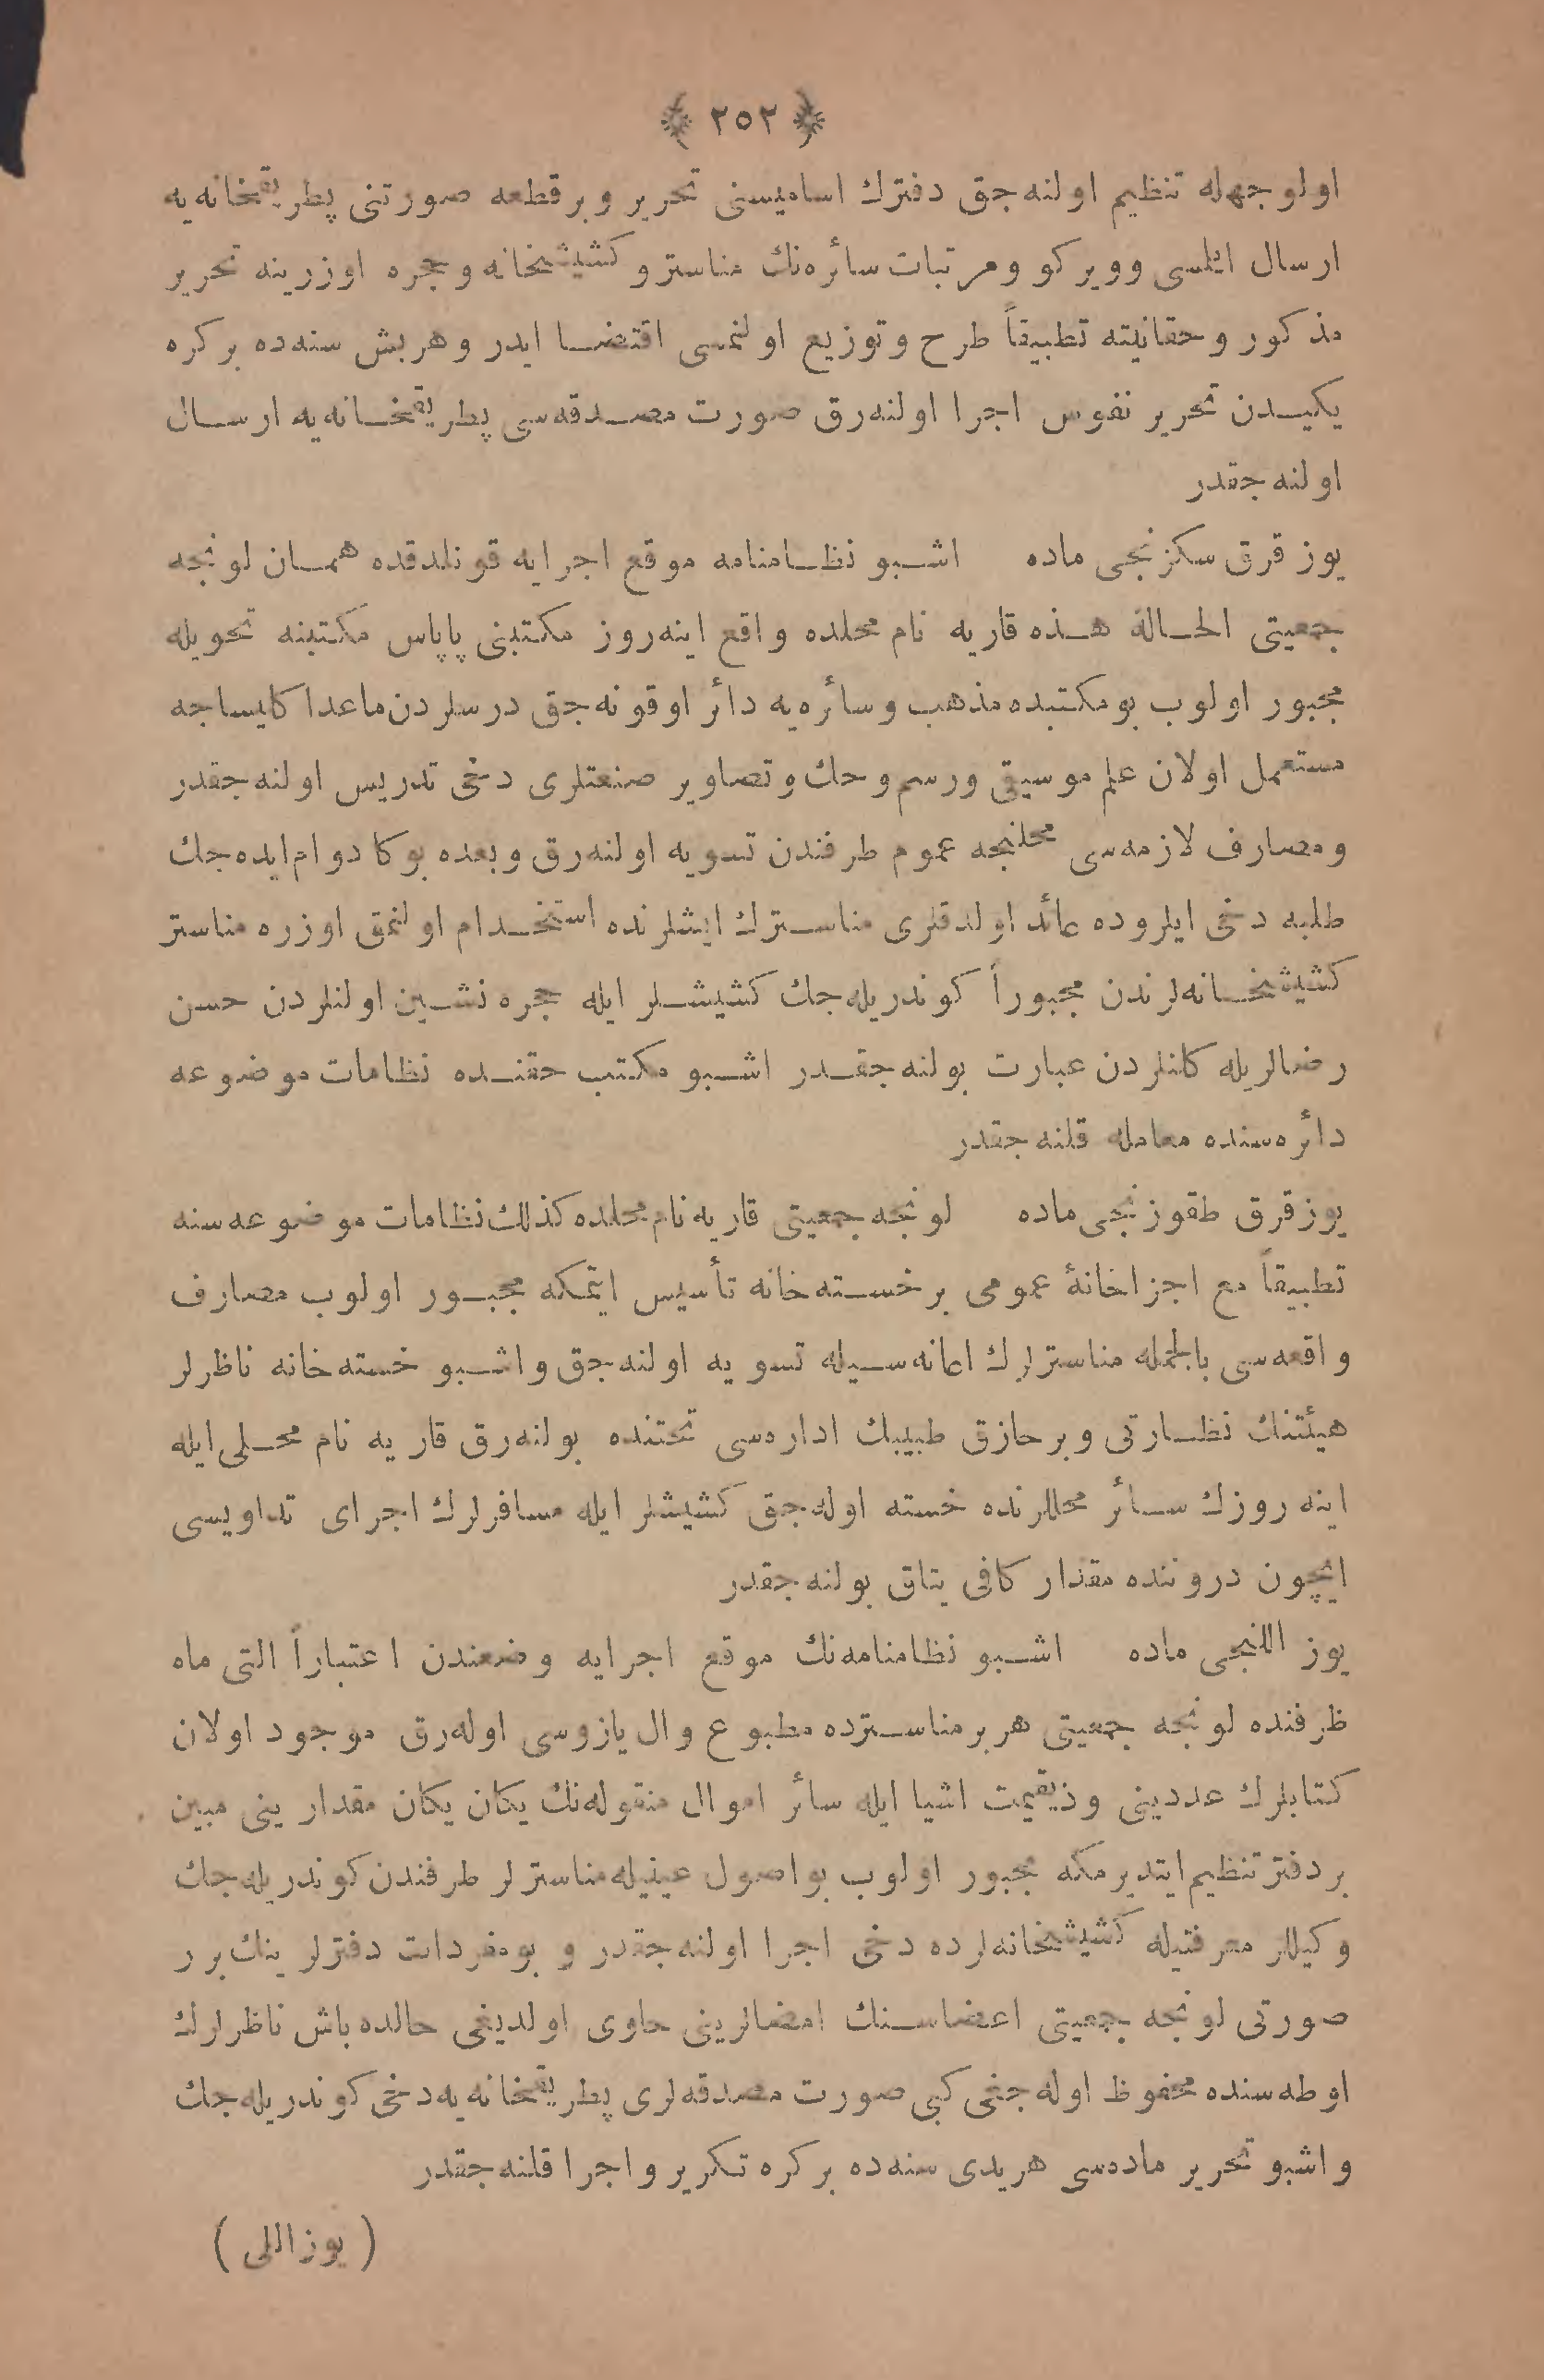 ﴿ ٢٥٢ ﴾
اولوجهله تنظیم اولنه‌جق دفترك اسامیسنی تحریر و بر قطعه صورتنی پطریقخانه‌یه
ارسال ایلمسی وویركو ومرتبات سائره‌نك مناستر و كشیشخانه وحجره اوزرینه تحریر
مذكور وحقانیته تطبیقاً طرح وتوزیع اولنمسی اقتضا ایدر وهربش سنه‌ده بر كره
یكیدن تحریر نفوس اجرا اولنه‌رق صورت مصدقه‌سی پطریقخانه‌یه ارسال
اولنه‌جقدر
یوز قرق سكزنجی ماده اشبو نظامنامه موقع اجرایه قونلدقده همان لونجه
جمعیتی الحالة هذه قاریه نام محلده واقع اینه‌روز مكتبنی پاپاس مكتبنه تحویله
مجبور اولوب بو مكتبده مذهب وسائره‌یه دائر اوقونه‌جق درسلردن ماعدا كلیساجه
مستعمل اولان علم موسیقی ورسم وحك وتصاویر صنعتلری دخی تدریس اولنه‌جقدر
ومصارف لازمه‌سی محلنجه عموم طرفندن تسویه اولنه‌رق وبعده بوكا دوام ایده‌جك
طلبه دخی ایلروده عائد اولدقلری مناسترك ایشلرنده استخدام اولنمق اوزره مناستر
كشیشخانه‌لرندن مجبوراً كوندریله‌جك كشیشلر ایله حجره نشین اولنلردن حسن
رضالریله كلنلردن عبارت بولنه‌جقدر اشبو مكتب حقنده نظامات موضوعه
دائره‌سنده معامله قلنه‌جقدر
یوز قرق طقوزنجی ماده لونجه جمعیتی قاریه نام محلده كذلك نظامات موضوعه‌سنه
تطبیقاً مع اجزاخانۀ عمومی بر خسته‌خانه تأسیس ایتمكه مجبور اولوب مصارف
واقعه‌سی بالجمله مناسترلرك اعانه‌سیله تسویه اولنه‌جق واشبو خسته‌خانه ناظرلر
هیئتنك نظارتی وبر حازق طبیبك اداره‌سی تحتنده بولنه‌رق قاریه نام محلی ایله
اینه روزك سائر محللرنده خسته اوله‌جق كشیشلر ایله مسافرلرك اجرای تداویسی
ایچون دروننده مقدار كافی یتاق بولنه‌جقدر
یوز اللنجی ماده اشبو نظامنامه‌نك موقع اجرایه وضعندن اعتباراً التی ماه
ظرفنده لونجه جمعیتی هر بر مناسترده مطبوع وال یازوسی اوله‌رق موجود اولان
كتابلرك عددینی وذیقیمت اشیا ایله سائر اموال منقوله‌نك یكان یكان مقدارینی مبین
بر دفتر تنظیم ایتدیرمكه مجبور اولوب بو اصول عینیله مناسترلر طرفندن كوندریله‌جك
وكیللر معرفتیله كشیشخانه‌لرده دخی اجرا اولنه‌جقدر و بو مفردات دفترلرینك برر
صورتی لونجه جمعیتی اعضاسنك امضالرینی حاوی اولدیغی حالده باش ناظرلرك
اوطه‌سنده محفوظ اوله‌جغی كبی صورت مصدقه‌لری پطریقخانه‌یه دخی كوندریله‌جك
واشبو تحریر ماده‌سی هر یدی سنه‌ده بر كره تكریر واجرا قلنه‌جقدر
( یوز اللی )